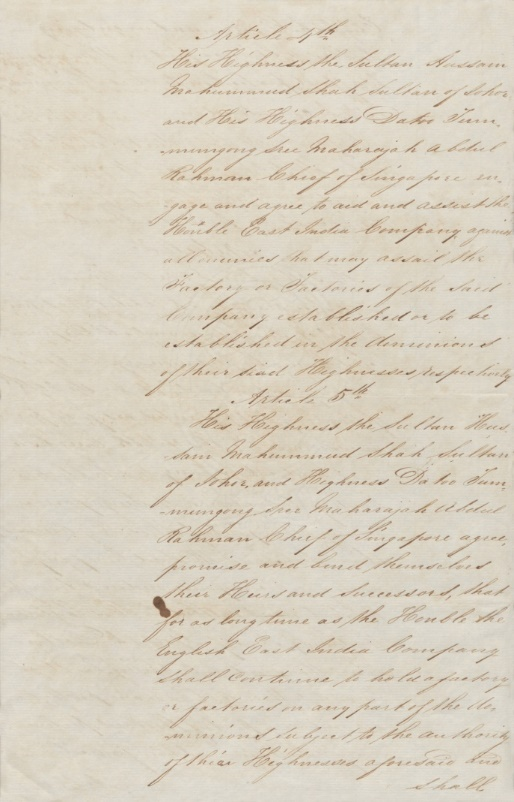 Article 4th
His Highness the Sultan Hussam
Mahummud Shah Sultan of Johor
and His Highness Datoo Tum-
-mungong Sree Maharajah Abdul
Rahman Chief of Singapore en-
gage and agree to aid and assist the
Honble East India Company against
all enemies that may assail the
Factory or Factories of the said
Company established or to be
established in the dominions
of their said Highnesses respectively
Article 5th
His Highness the Sultan Hus-
sam Mahummud Shah Sultan
of Johor, and Highness Datoo Tum-
-mungong Sree Maharajah Abdul
Rahman Chief of Singapore agree,
promise and bind themselves
their Heirs and Successors, that
for as long time as the Honble the
English East India Company
shall continue to hold a factory
or factories on any part of the do-
-minions subject to the authority
of their Highnesses aforesaid and
shall